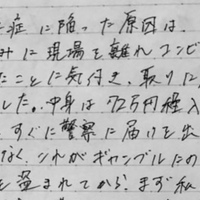 症に陥った原因は、
みに現場を離れコンビ
たことに気付き、取りに
した。中身は72万円程入
すぐに警察に届いを出
なく、ソれがギャンブルにの
を盗まれてから、まず私